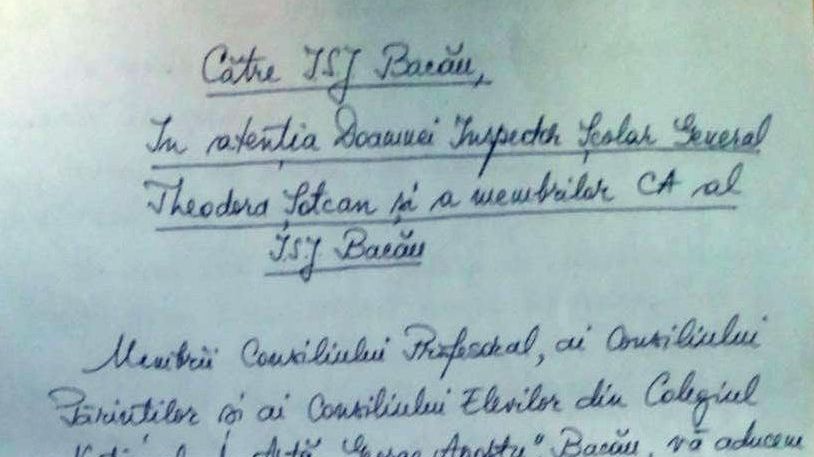 Către ISJ Bacău,
În atenția Doamnei Inspector Școlar General
Theodora Șotcan și a membrilor CA al
I.S.J Bacău
Membrii Consiliului Profesoral, ai Consiliului
Părinților și ai Consiliului Elevilor din Colegiul
Artă "George Apostu" Bacău, vă aducem